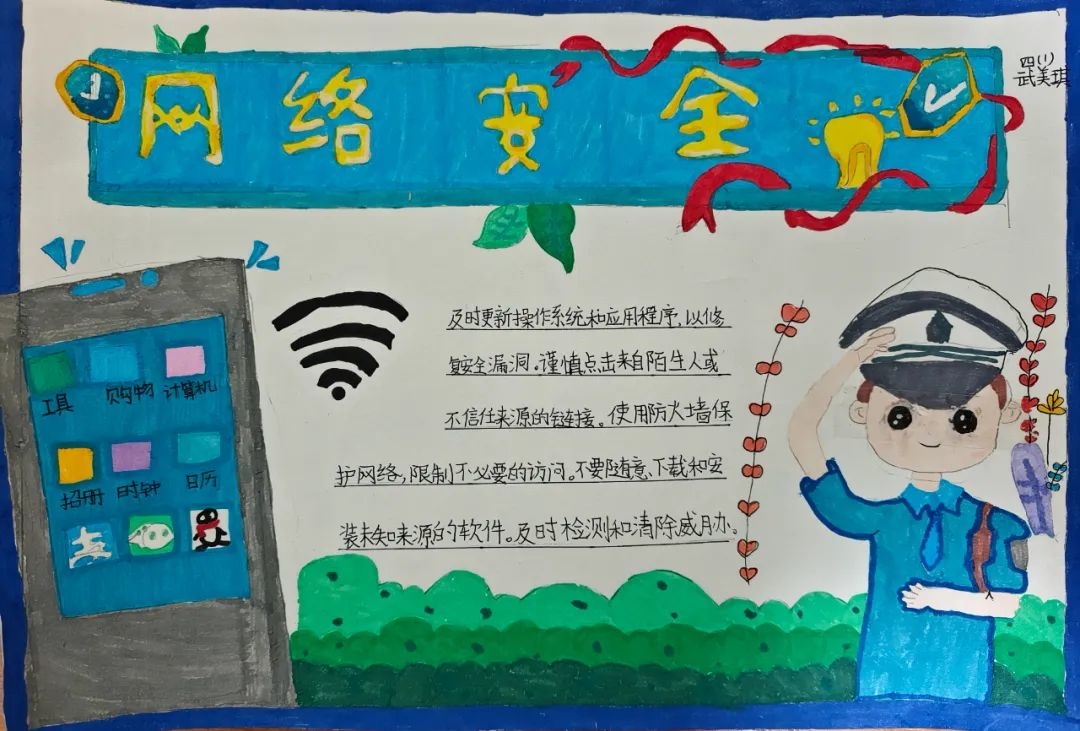 网络安全
四(1)
武美琪
及时更新操作系统和应用程序,以修
复安全漏洞。谨慎点击来自陌生人或
不信任来源的链接。使用防火墙保
护网络,限制不必要的访问。不要随意下载和安
装未知来源的软件。及时检测和清除威胁。
工具
购物
计算机
招册
时钟
日历